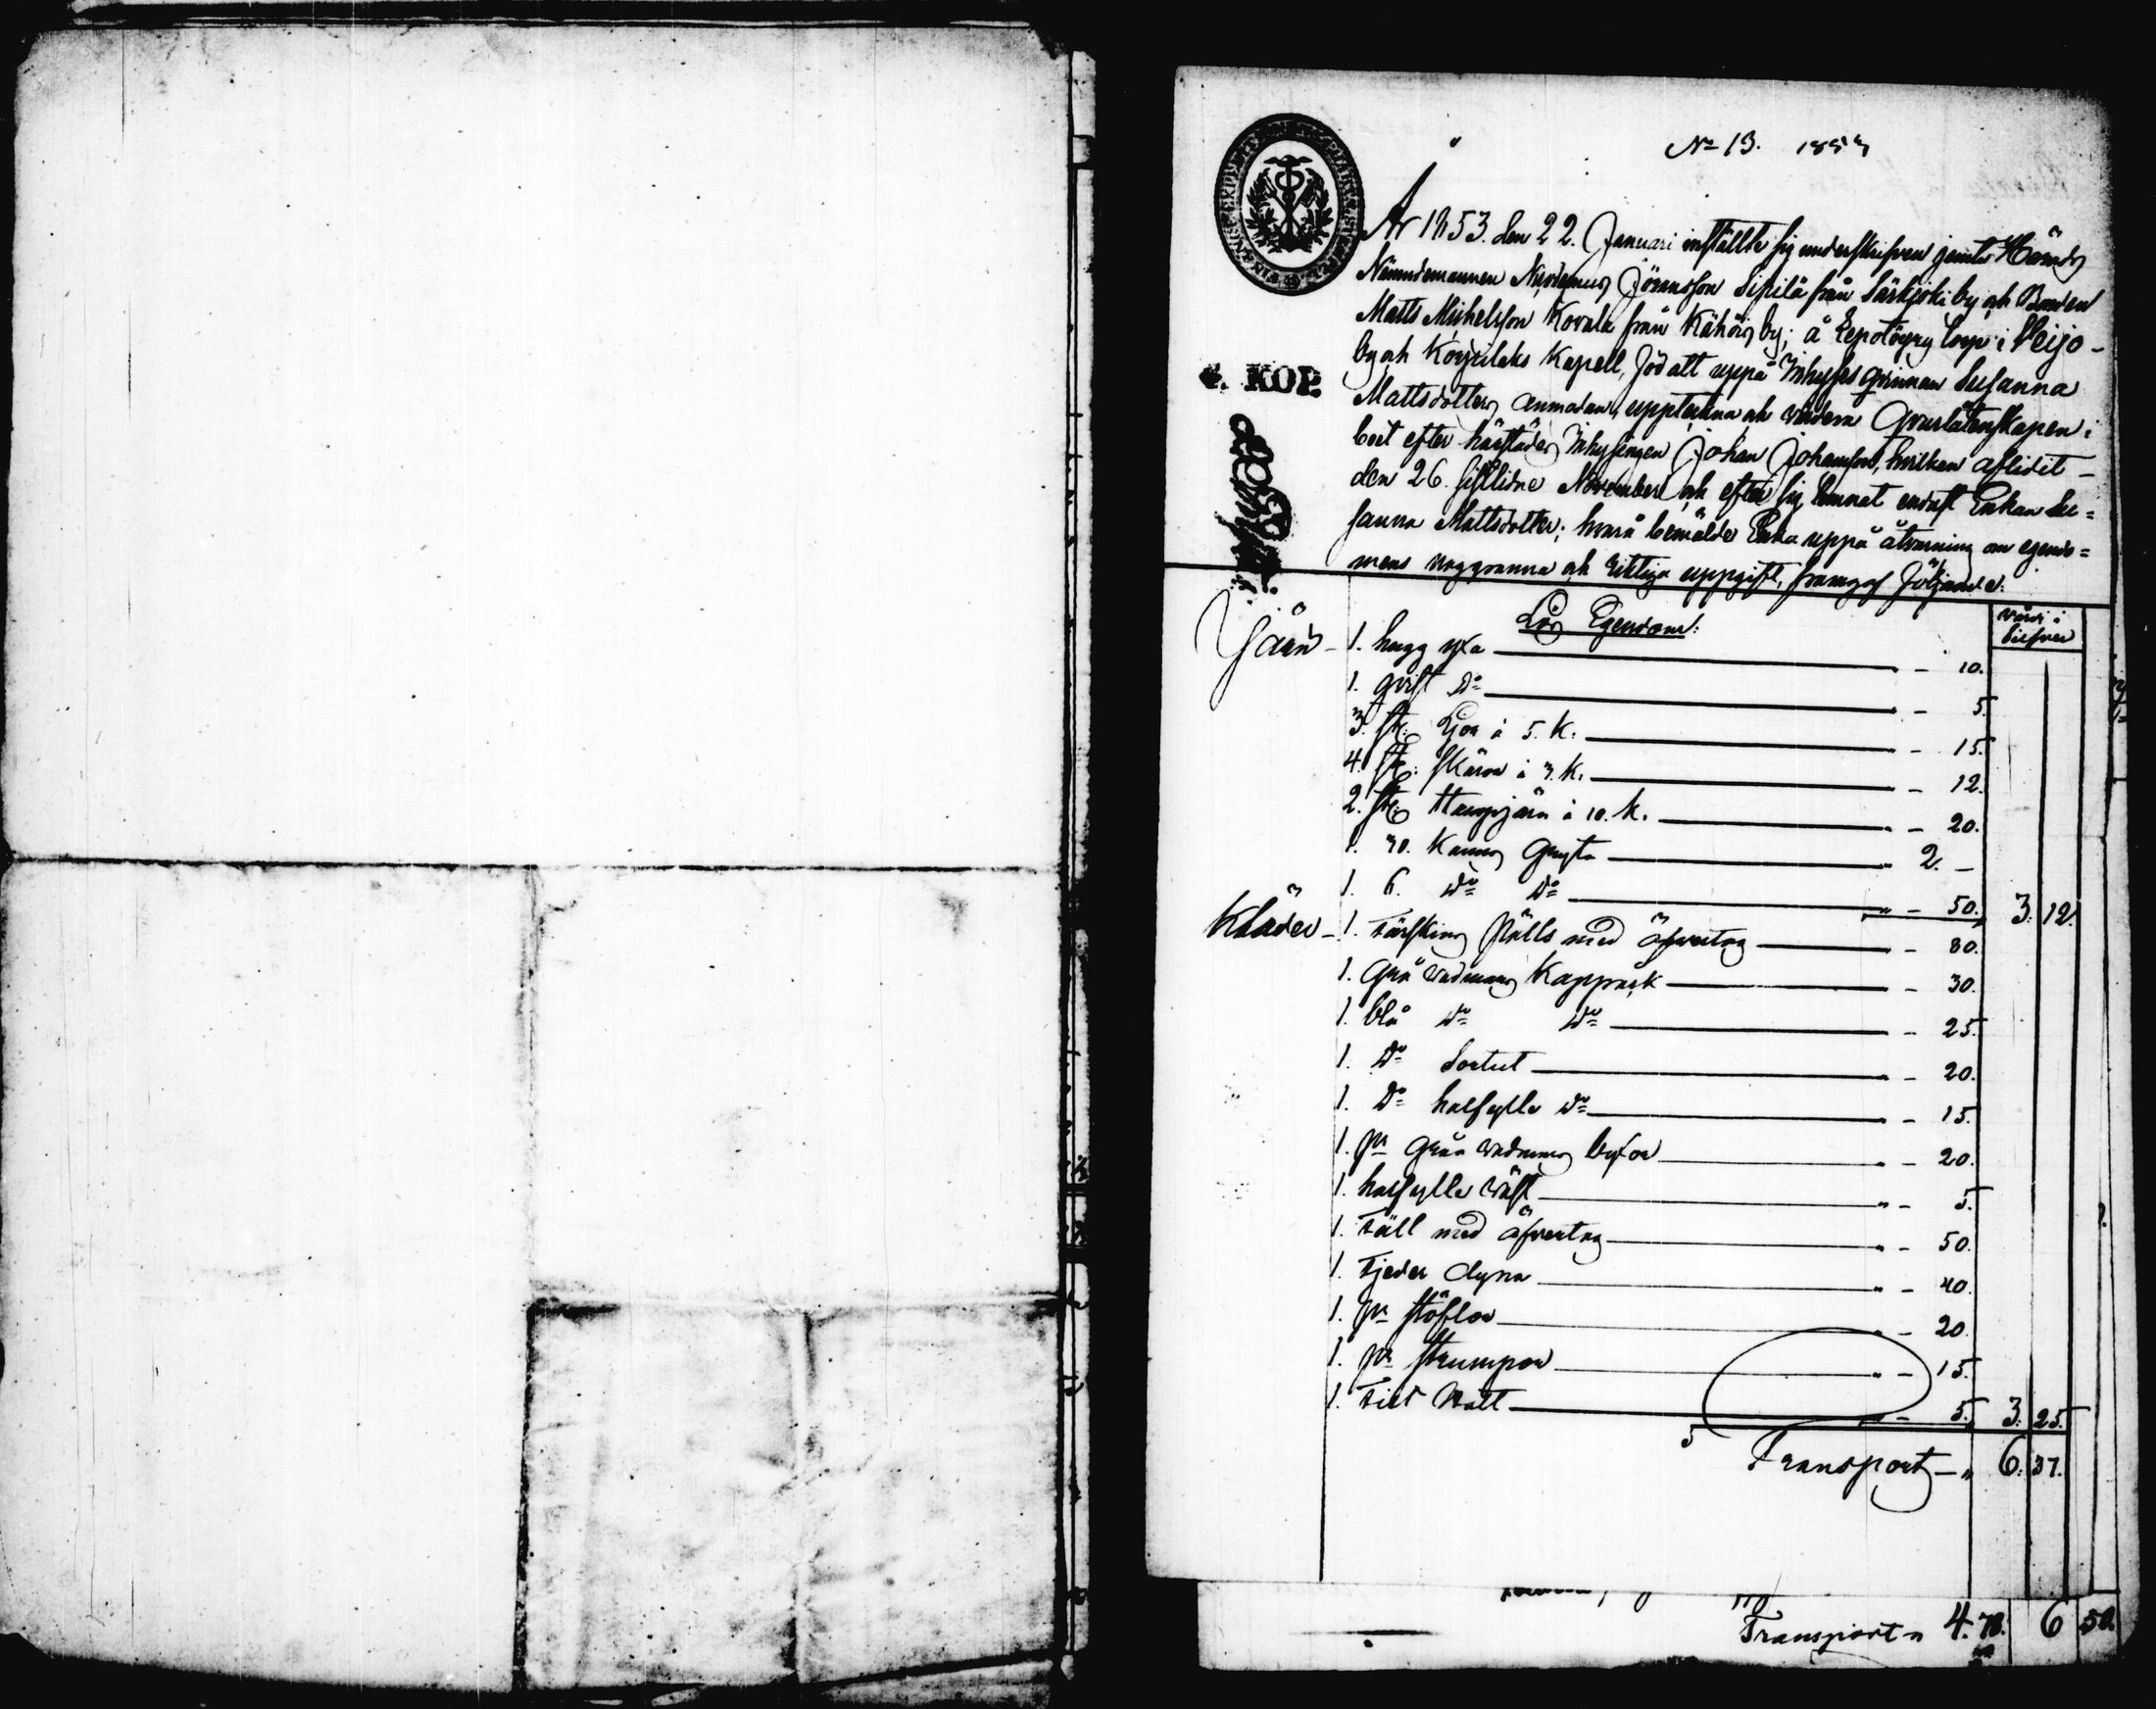 No 13. 1853
År 1853. den 22. Januari inställte sig underskrifven jemte Härads
Nämndemannen Nicodemus Jöransson Sipilä från Särkijoki by och Bonden
Matts Michelsson Kovala från Kähöis by; å Lepolögny torp i Peijo-
by och Kortilaks Kapell, föd att uppå Inhyses qvinnan Susanna
Mattsdotters anmodan, uppteckna och värdera Qvarlåtenskapen i
boet efter härstädes Inhysingen Johan Johansson, hvilken aflidit
den 26. sistlidne November och efter sig lemnat endast Enkan Su=
sanna Mattsdotter; hvarå bemälde Enka uppå åtvarning om egendo=
mens noggranna och riktiga uppgift, framgaf följande:
4. KOP.
Lös Egendom:
värde i
silfver
Järn - 1. hugg yxa - 10.
1. qvist do - 5.
3. st: Liar à 5. K. - 15.
4. st: skäror à 3. K. - 12.
2. st: Stångjärn à 10. K. - 20.
1. 30. Kannors Gryta 2. -
1. 6. do do - 50. 3. 12.
Kläder - 1. Fårskins Pälls med öfvertag - 80.
1. Grå vadmans Kappråk - 30.
1. blå do do - 25.
1. do Sortut - 20.
1. do halfylle do - 15.
1. par Gråa vadmans byxor - 20.
1. halfylle väst - 5.
1. Fäll med öfvertag - 50.
1. Fjeder dyna - 40.
1. par stöflor - 20.
1. par strumpor - 15.
1. Filt Hatt - 5. 3. 25.
Transport - 6. 37.
Transport 4. 70. 6 50.